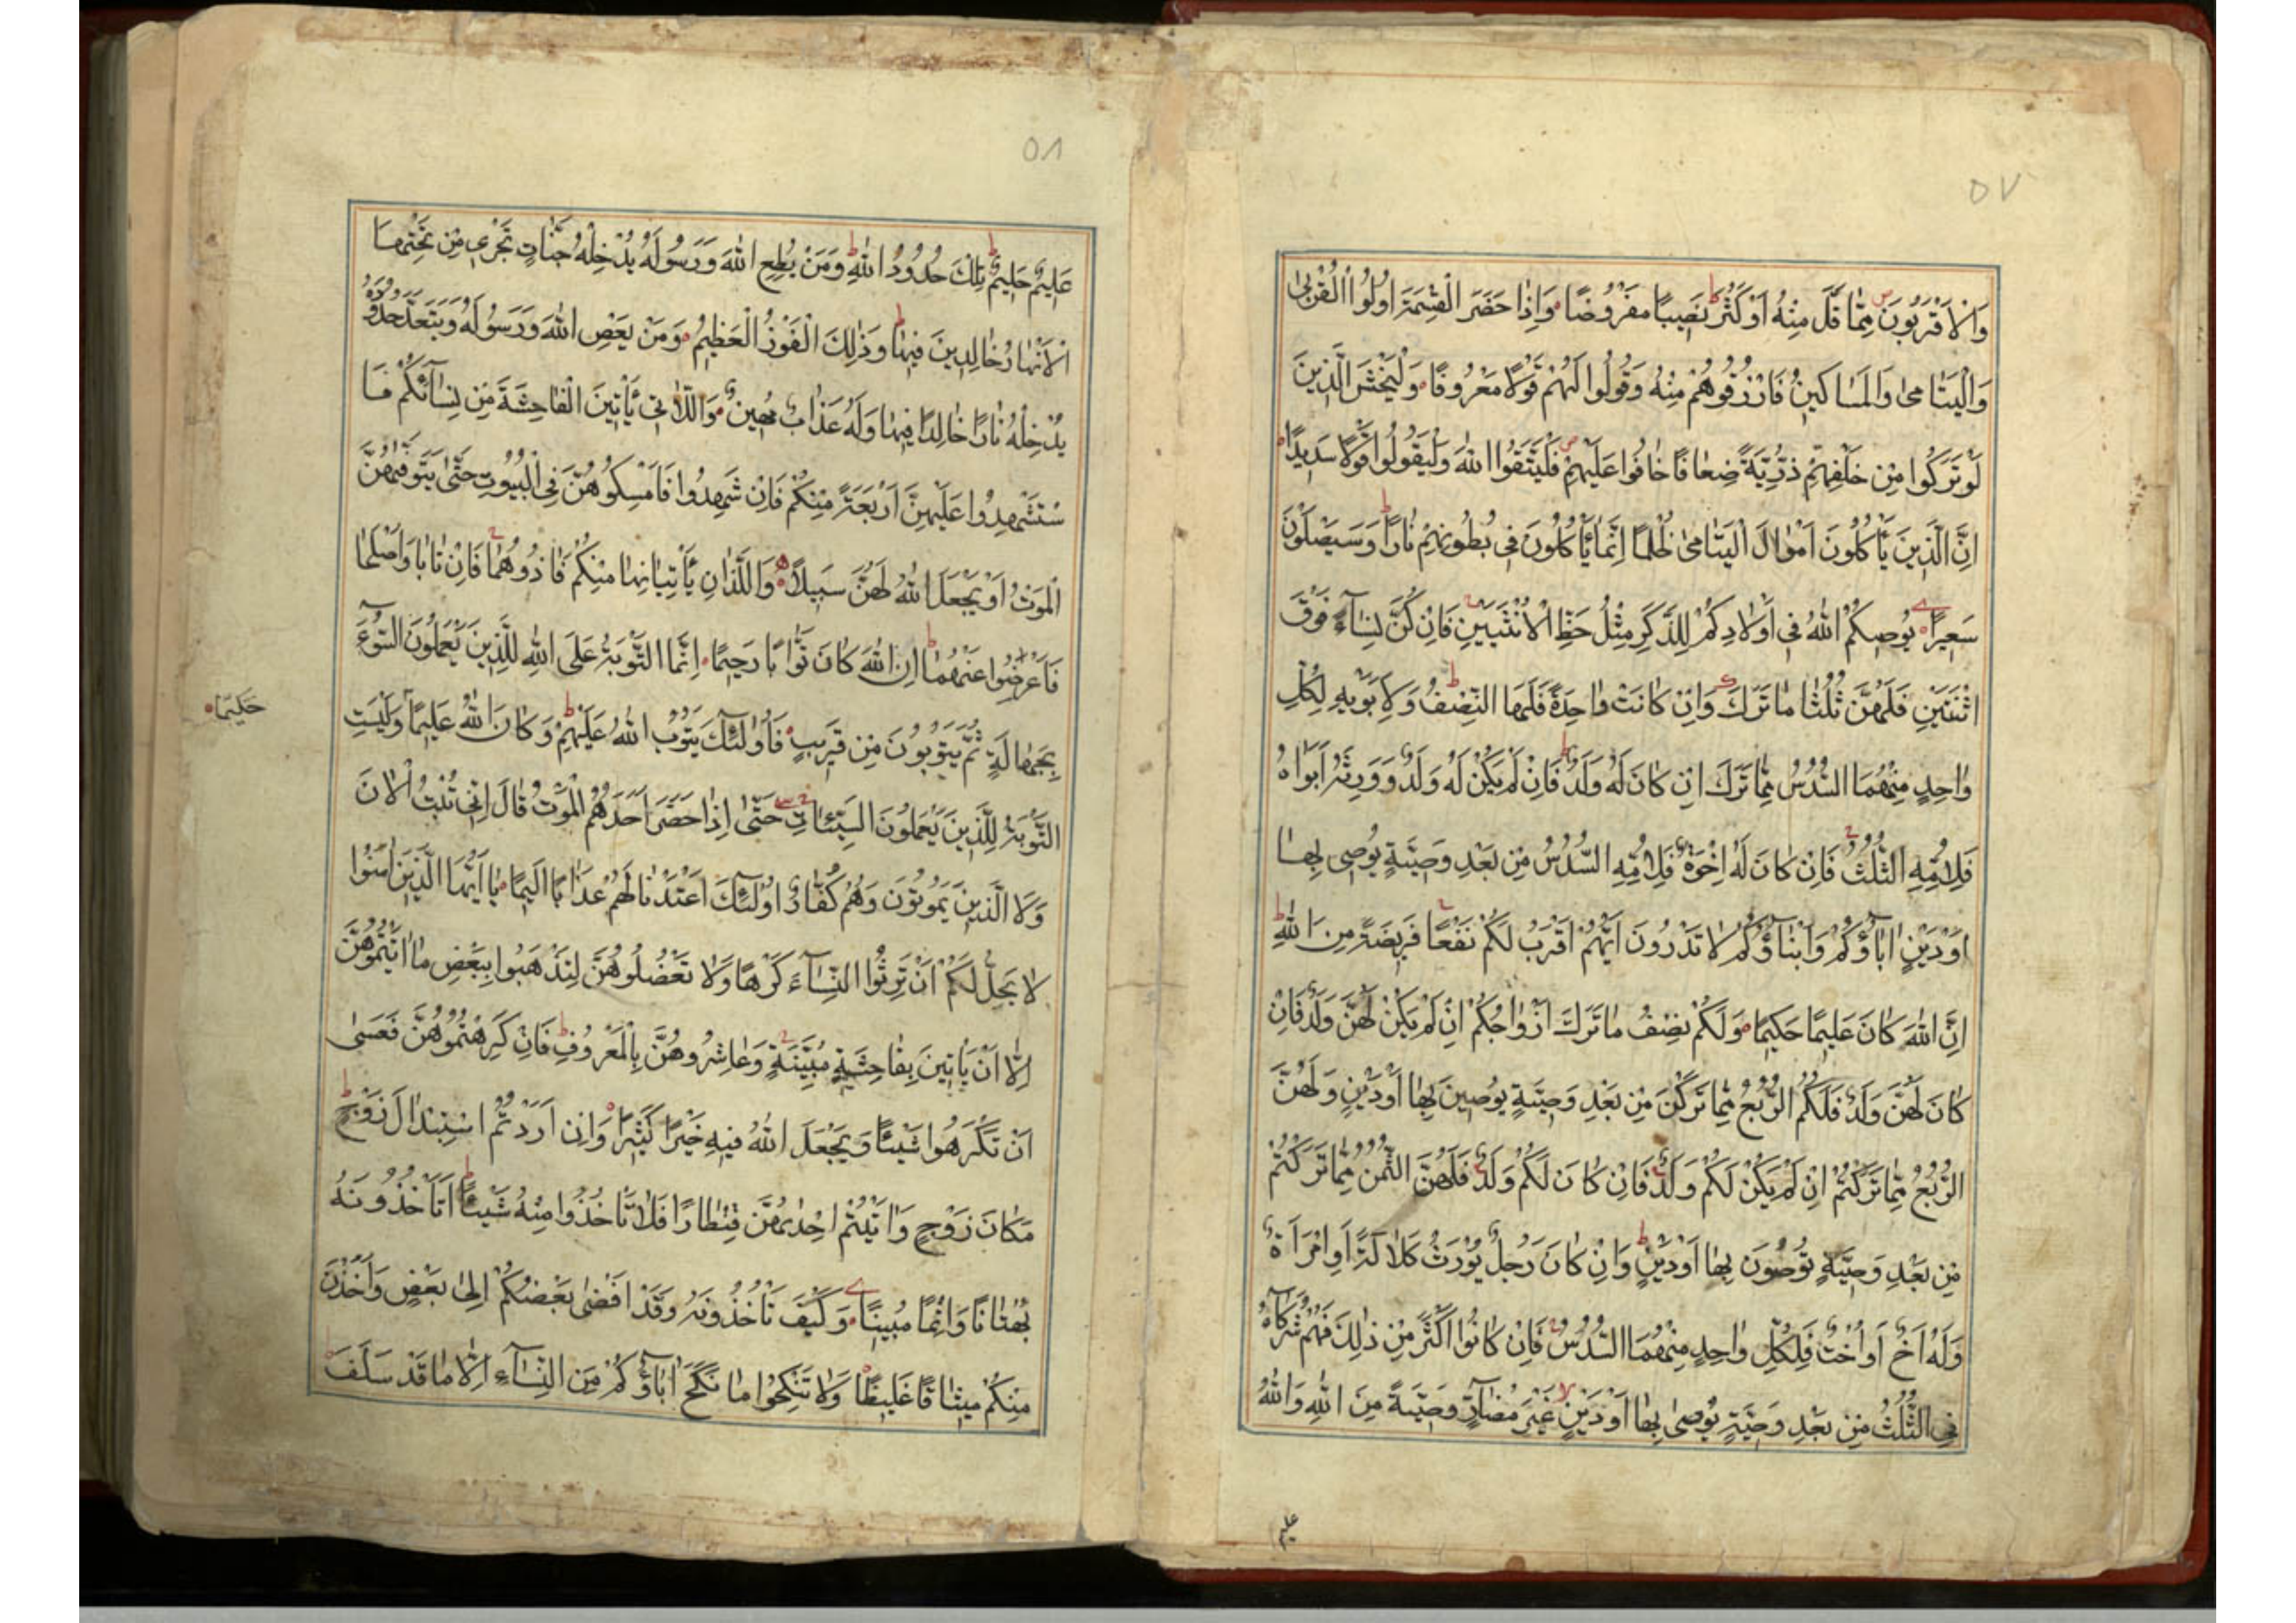 ٥٧
وَالْاَقْرَبُونَ مِمَّا قَلَّ مِنْهُ اَوْ كَثُرَ نَصِيبًا مَفْرُوضًا وَاِذَا حَضَرَ الْقِسْمَةَ اُولُوا الْقُرْبٰى
وَالْيَتَامٰى وَالْمَسَاكِينُ فَارْزُقُوهُمْ مِنْهُ وَقُولُوا لَهُمْ قَوْلًا مَعْرُوفًا وَلْيَخْشَ الَّذِينَ
لَوْ تَرَكُوا مِنْ خَلْفِهِمْ ذُرِّيَّةً ضِعَافًا خَافُوا عَلَيْهِمْ فَلْيَتَّقُوا اللّٰهَ وَلْيَقُولُوا قَوْلًا سَدِيدًا
اِنَّ الَّذِينَ يَأْكُلُونَ اَمْوَالَ الْيَتَامٰى ظُلْمًا اِنَّمَا يَأْكُلُونَ فِى بُطُونِهِمْ نَارًا وَسَيَصْلَوْنَ
سَعِيرًا يُوصِيكُمُ اللّٰهُ فِى اَوْلَادِكُمْ لِلذَّكَرِ مِثْلُ حَظِّ الْاُنْثَيَيْنِ فَاِنْ كُنَّ نِسَآءً فَوْقَ
اثْنَتَيْنِ فَلَهُنَّ ثُلُثَا مَا تَرَكَ وَاِنْ كَانَتْ وَاحِدَةً فَلَهَا النِّصْفُ وَلِاَبَوَيْهِ لِكُلِّ
وَاحِدٍ مِنْهُمَا السُّدُسُ مِمَّا تَرَكَ اِنْ كَانَ لَهُ وَلَدٌ فَاِنْ لَمْ يَكُنْ لَهُ وَلَدٌ وَوَرِثَهُ اَبَوَاهُ
فَلِاُمِّهِ الثُّلُثُ فَاِنْ كَانَ لَهُ اِخْوَةٌ فَلِاُمِّهِ السُّدُسُ مِنْ بَعْدِ وَصِيَّةٍ يُوصِى بِهَا
اَوْ دَيْنٍ اٰبَآؤُكُمْ وَاَبْنَآؤُكُمْ لَا تَدْرُونَ اَيُّهُمْ اَقْرَبُ لَكُمْ نَفْعًا فَرِيضَةً مِنَ اللّٰهِ
اِنَّ اللّٰهَ كَانَ عَلِيمًا حَكِيمًا وَلَكُمْ نِصْفُ مَا تَرَكَ اَزْوَاجُكُمْ اِنْ لَمْ يَكُنْ لَهُنَّ وَلَدٌ فَاِنْ
كَانَ لَهُنَّ وَلَدٌ فَلَكُمُ الرُّبُعُ مِمَّا تَرَكْنَ مِنْ بَعْدِ وَصِيَّةٍ يُوصِينَ بِهَا اَوْ دَيْنٍ وَلَهُنَّ
الرُّبُعُ مِمَّا تَرَكْتُمْ اِنْ لَمْ يَكُنْ لَكُمْ وَلَدٌ فَاِنْ كَانَ لَكُمْ وَلَدٌ فَلَهُنَّ الثُّمُنُ مِمَّا تَرَكْتُمْ
مِنْ بَعْدِ وَصِيَّةٍ تُوصُونَ بِهَا اَوْ دَيْنٍ وَاِنْ كَانَ رَجُلٌ يُورَثُ كَلَالَةً اَوِ امْرَاَةٌ
وَلَهُ اَخٌ اَوْ اُخْتٌ فَلِكُلِّ وَاحِدٍ مِنْهُمَا السُّدُسُ فَاِنْ كَانُوا اَكْثَرَ مِنْ ذٰلِكَ فَهُمْ شُرَكَآءُ
فِى الثُّلُثِ مِنْ بَعْدِ وَصِيَّةٍ يُوصٰى بِهَا اَوْ دَيْنٍ غَيْرَ مُضَآرٍّ وَصِيَّةً مِنَ اللّٰهِ وَاللّٰهُ
عليم
٥٨
عَلِيمٌ حَلِيمٌ تِلْكَ حُدُودُ اللّٰهِ وَمَنْ يُطِعِ اللّٰهَ وَرَسُولَهُ يُدْخِلْهُ جَنَّاتٍ تَجْرِى مِنْ تَحْتِهَا
الْاَنْهَارُ خَالِدِينَ فِيهَا وَذٰلِكَ الْفَوْزُ الْعَظِيمُ وَمَنْ يَعْصِ اللّٰهَ وَرَسُولَهُ وَيَتَعَدَّ حُدُودَهُ
يُدْخِلْهُ نَارًا خَالِدًا فِيهَا وَلَهُ عَذَابٌ مُهِينٌ وَالّٰاتِى يَأْتِينَ الْفَاحِشَةَ مِنْ نِسَآئِكُمْ فَا
سْتَشْهِدُوا عَلَيْهِنَّ اَرْبَعَةً مِنْكُمْ فَاِنْ شَهِدُوا فَاَمْسِكُوهُنَّ فِى الْبُيُوتِ حَتّٰى يَتَوَفّٰيهُنَّ
الْمَوْتُ اَوْ يَجْعَلَ اللّٰهُ لَهُنَّ سَبِيلًا وَاللَّذَانِ يَأْتِيَانِهَا مِنْكُمْ فَاٰذُوهُمَا فَاِنْ تَابَا وَاَصْلَحَا
فَاَعْرِضُوا عَنْهُمَا اِنَّ اللّٰهَ كَانَ تَوَّابًا رَحِيمًا اِنَّمَا التَّوْبَةُ عَلَى اللّٰهِ لِلَّذِينَ يَعْمَلُونَ السُّوٓءَ
بِجَهَالَةٍ ثُمَّ يَتُوبُونَ مِنْ قَرِيبٍ فَاُولٰٓئِكَ يَتُوبُ اللّٰهُ عَلَيْهِمْ وَكَانَ اللّٰهُ عَلِيمًا وَلَيْسَتِ
حَكِيمًا
التَّوْبَةُ لِلَّذِينَ يَعْمَلُونَ السَّيِّئَاتِ حَتّٰى اِذَا حَضَرَ اَحَدَهُمُ الْمَوْتُ قَالَ اِنِّى تُبْتُ الْاٰنَ
وَلَا الَّذِينَ يَمُوتُونَ وَهُمْ كُفَّارٌ اُولٰٓئِكَ اَعْتَدْنَا لَهُمْ عَذَابًا اَلِيمًا يَا اَيُّهَا الَّذِينَ اٰمَنُوا
لَا يَحِلُّ لَكُمْ اَنْ تَرِثُوا النِّسَآءَ كَرْهًا وَلَا تَعْضُلُوهُنَّ لِتَذْهَبُوا بِبَعْضِ مَا اٰتَيْتُمُوهُنَّ
اِلَّا اَنْ يَأْتِينَ بِفَاحِشَةٍ مُبَيِّنَةٍ وَعَاشِرُوهُنَّ بِالْمَعْرُوفِ فَاِنْ كَرِهْتُمُوهُنَّ فَعَسٰى
اَنْ تَكْرَهُوا شَيْئًا وَيَجْعَلَ اللّٰهُ فِيهِ خَيْرًا كَثِيرًا وَاِنْ اَرَدْتُمُ اسْتِبْدَالَ زَوْجٍ
مَكَانَ زَوْجٍ وَاٰتَيْتُمْ اِحْدٰيهُنَّ قِنْطَارًا فَلَا تَأْخُذُوا مِنْهُ شَيْئًا اَتَأْخُذُونَهُ
بُهْتَانًا وَاِثْمًا مُبِينًا وَكَيْفَ تَأْخُذُونَهُ وَقَدْ اَفْضٰى بَعْضُكُمْ اِلٰى بَعْضٍ وَاَخَذْنَ
مِنْكُمْ مِيثَاقًا غَلِيظًا وَلَا تَنْكِحُوا مَا نَكَحَ اٰبَآؤُكُمْ مِنَ النِّسَآءِ اِلَّا مَا قَدْ سَلَفَ